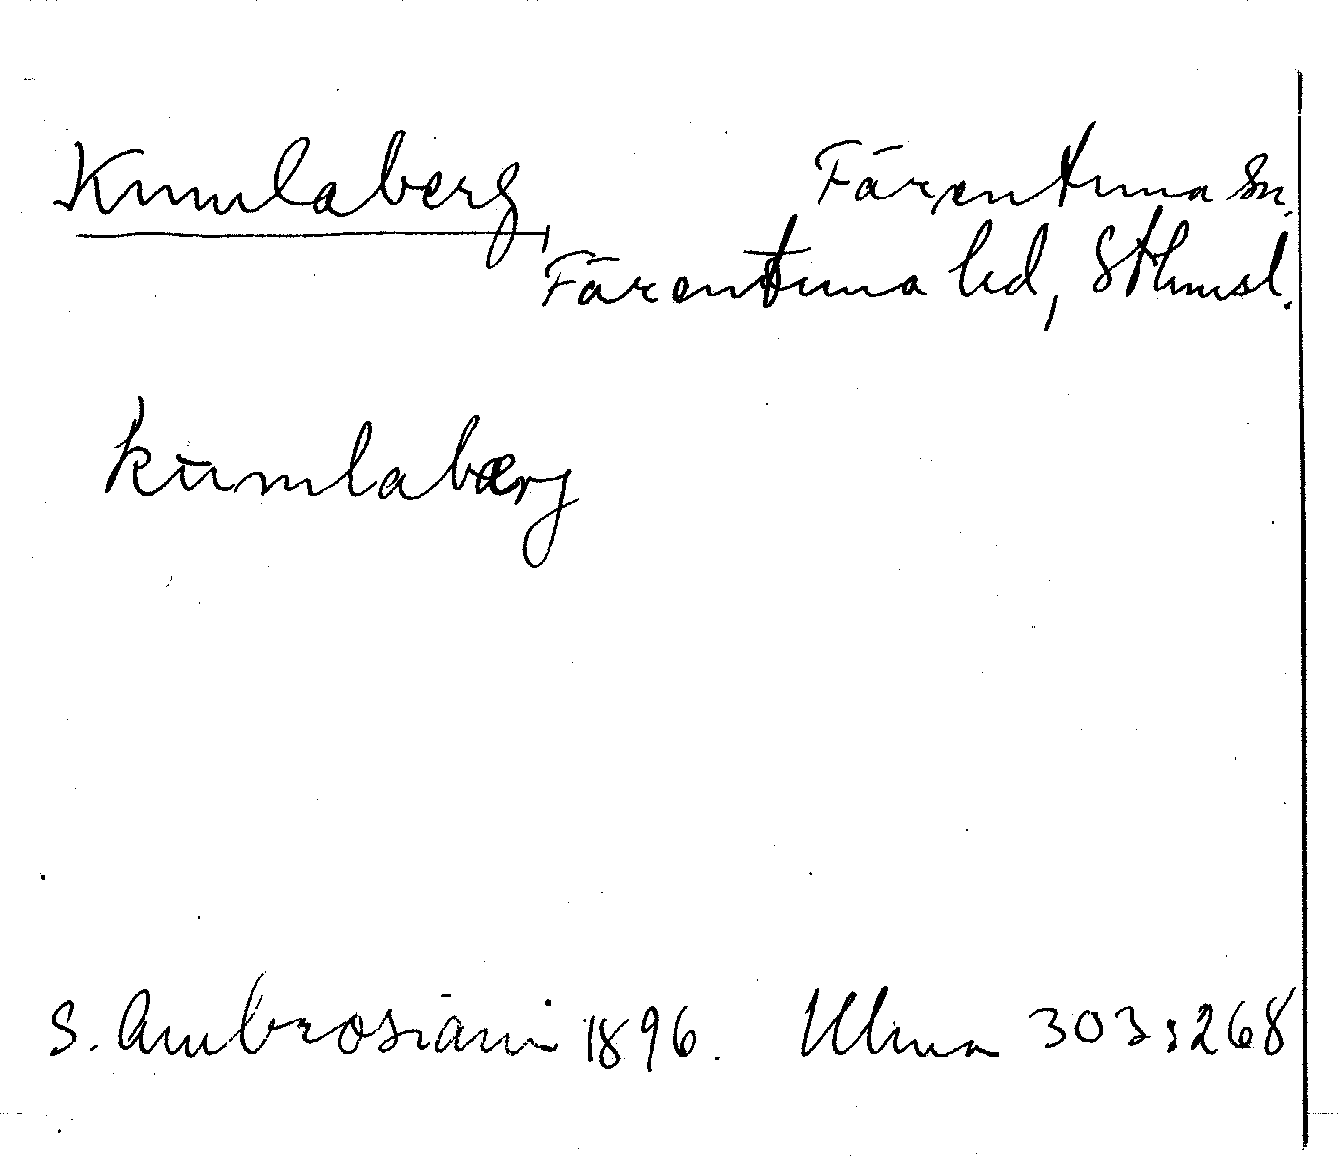 Kumlaberg
Färentuna sn.
Färentuna hd, Sthmsl.
kumlabærj
S. Ambrosiani 1896. Ulma 303:268